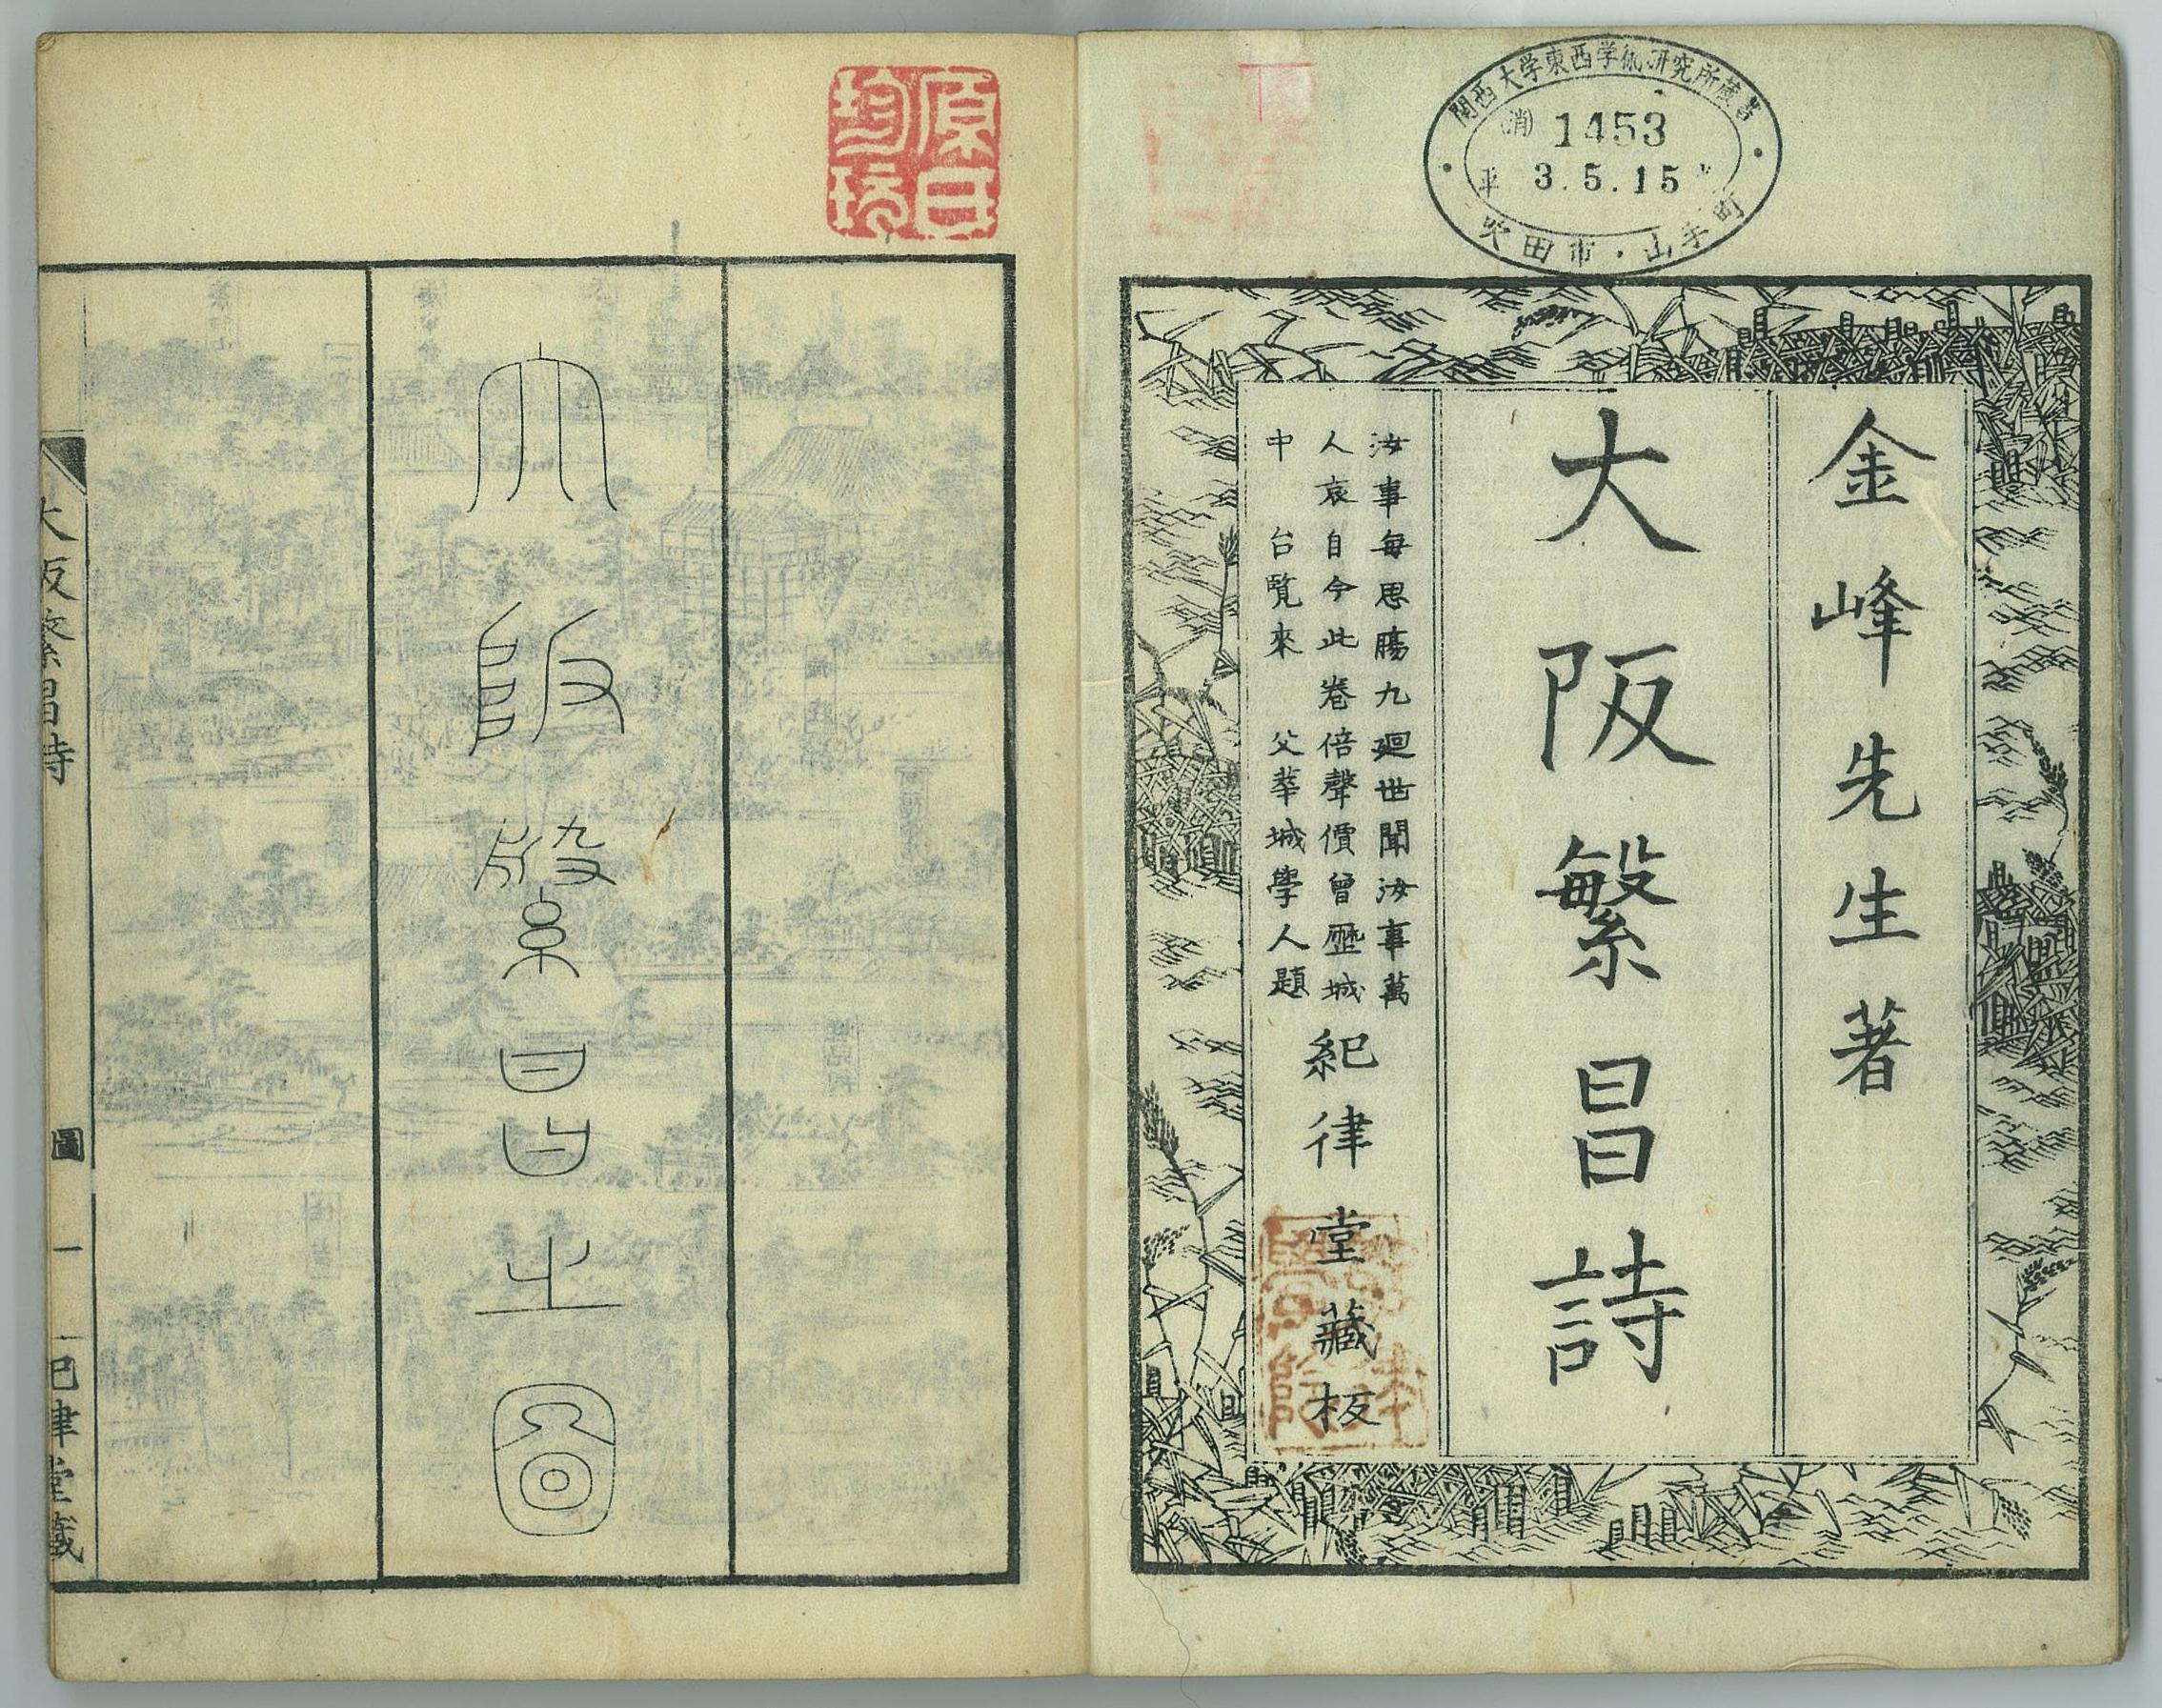 関西大学東西学術研究所蔵書
(消) 1453
平 3.5.15
吹田市・山手町
金峰先生著
大阪繁昌詩
汝事每思腸九廻世聞汝事萬
人哀自今此卷倍聲價曾歷城
中 台覽來 父華城學人題
紀律堂藏板
原田
珍玩
大阪繁昌之圖
大阪繁昌詩 圖 一 紀律堂藏